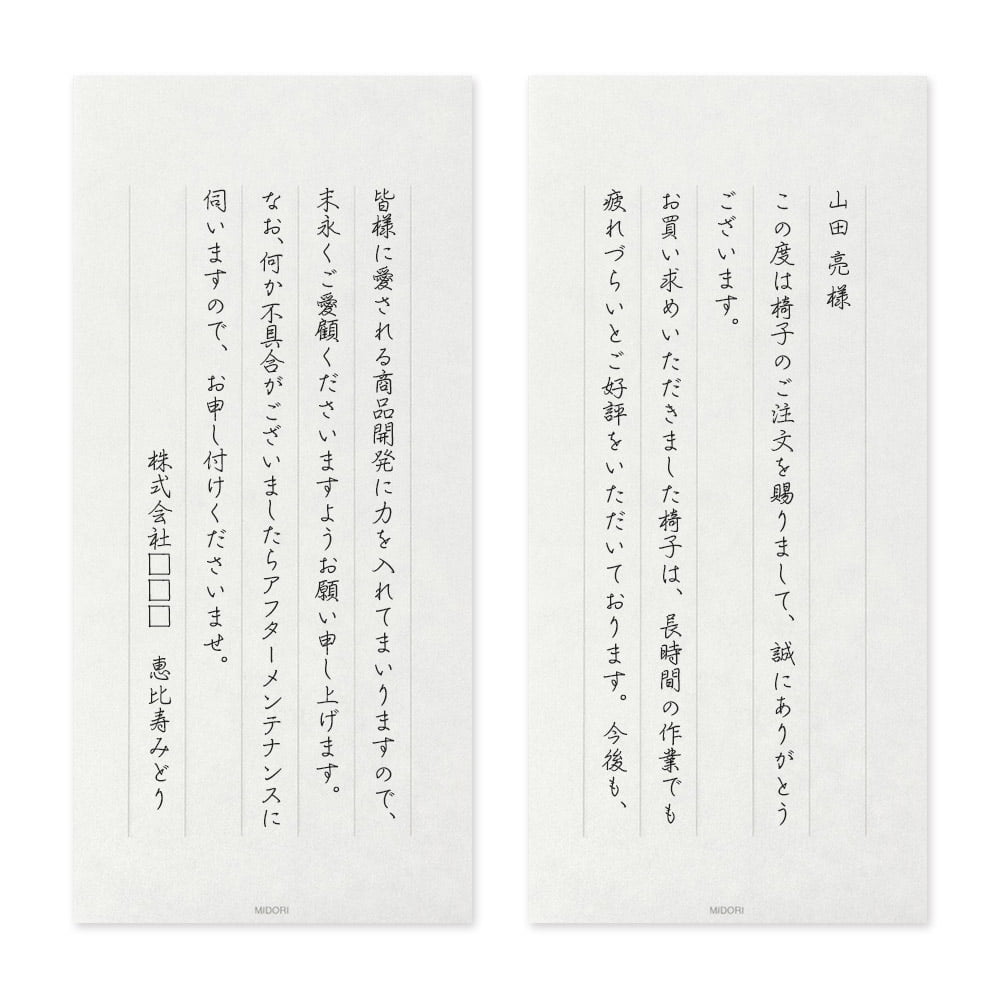 山田 亮様
この度は椅子のご注文を賜りまして、誠にありがとう
ございます。
お買い求めいただきました椅子は、長時間の作業でも
疲れづらいとご好評をいただいております。今後も、
MIDORI
皆様に愛される商品開発に力を入れてまいりますので、
末永くご愛顧くださいますようお願い申し上げます。
なお、何か不具合がございましたらアフターメンテナンスに
伺いますので、お申し付けくださいませ。
株式会社□□□ 恵比寿みどり
MIDORI